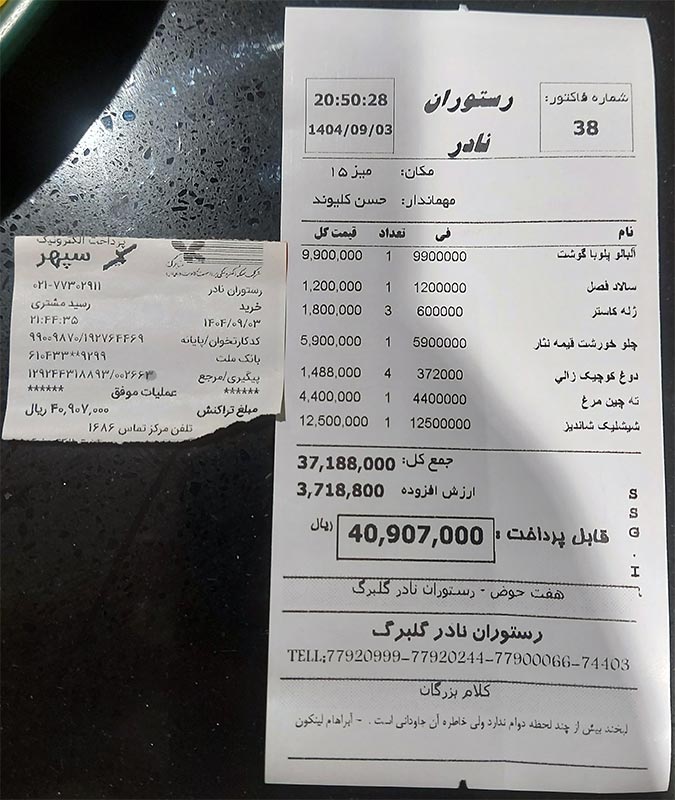 شماره فاکتور:
38
رستوران
نادر
20:50:28
1404/09/03
مکان: میز ۱۵
مهماندار: حسن کلیوند
نام فی تعداد قیمت کل
آلبالو پلوبا گوشت 9900000 1 9,900,000
سالاد فصل 1200000 1 1,200,000
ژله کاستر 600000 3 1,800,000
چلو خورشت قیمه نثار 5900000 1 5,900,000
دوغ کوچیک زالی 372000 4 1,488,000
ته چین مرغ 4400000 1 4,400,000
شیشلیک شاندیز 12500000 1 12,500,000
جمع کل: 37,188,000
ارزش افزوده 3,718,800
قابل پرداخت : 40,907,000 ریال
S
S
G
.
I
هفت حوض - رستوران نادر گلبرگ
رستوران نادر گلبرگ
TELL;77920999-77920244-77900066-74403
کلام بزرگان
لبخند بیش از چند لحظه دوام ندارد ولی خاطره آن جاودانی است . - آبراهام لینکون
پرداخت الکترونیک
سپهر
رستوران نادر ۰۲۱-۷۷۳۰۲۹۱۱
خرید رسید مشتری
۱۴۰۴/۰۹/۰۳ ۲۱:۴۴:۳۵
کدکارتخوان/پایانه ۹۹۰۰۹۸۷۰/۱۹۲۷۶۴۴۶۹
بانک ملت ۶۱۰۴۳۳**۹۲۹۹
پیگیری/مرجع ۱۲۹۲۴۴۳۱۸۸۹۳/۰۰۲۶۶۳
****** عملیات موفق ******
مبلغ تراکنش ۴۰,۹۰۷,۰۰۰ ریال
تلفن مرکز تماس ۱۶۸۶